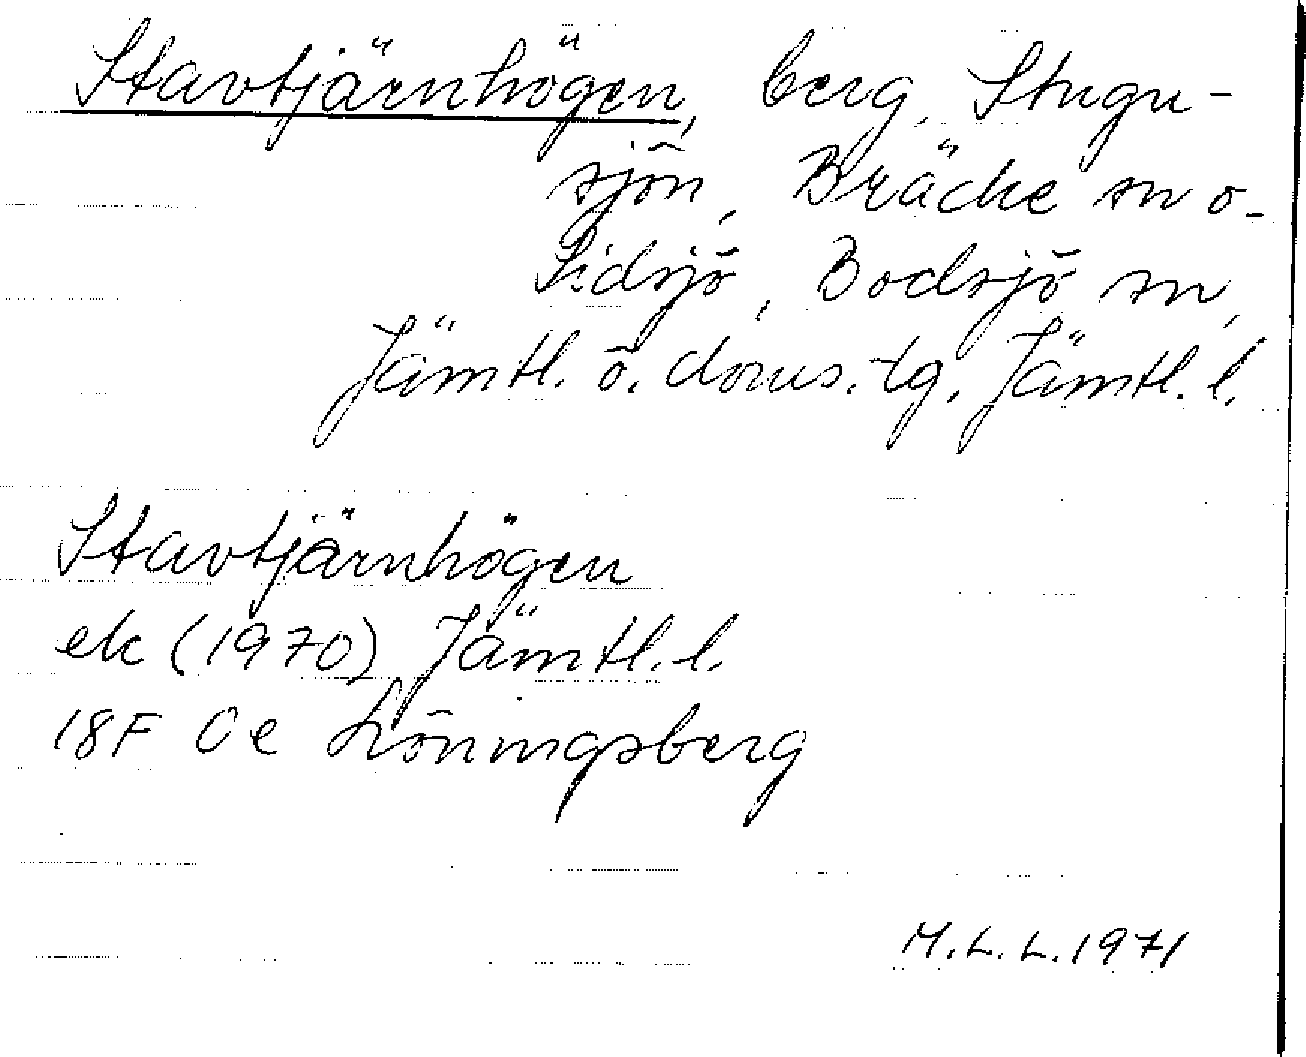 Stavtjärnhögen, berg, Stugu-
sjön, Bräcke sn o.
Sidsjö, Bodsjö sn,
Jämtl. ö. doms. tg, Jämtl. l.
Stavtjärnhögen
ek (1970) Jämtl. l.
18F 0e Löningsberg
M.L.L. 1971